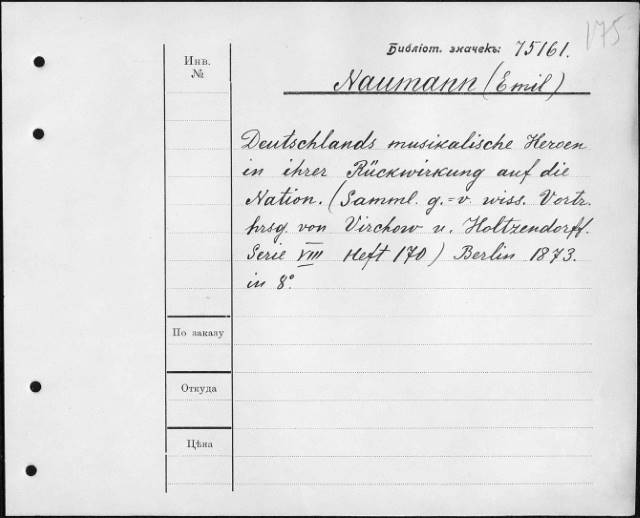 175
Библіот. значекъ: 75161.
Инв.
№
Naumann (Emil)
Deutschlands musikalische Heroen
in ihrer Rückwirkung auf die
Nation. (Samml. g.=v. wiss. Vortr.
hrsg. von Virchow u. Holtzendorff.
Serie VIII Heft 170) Berlin 1873.
in 8°.
По заказу
Откуда
Цѣна